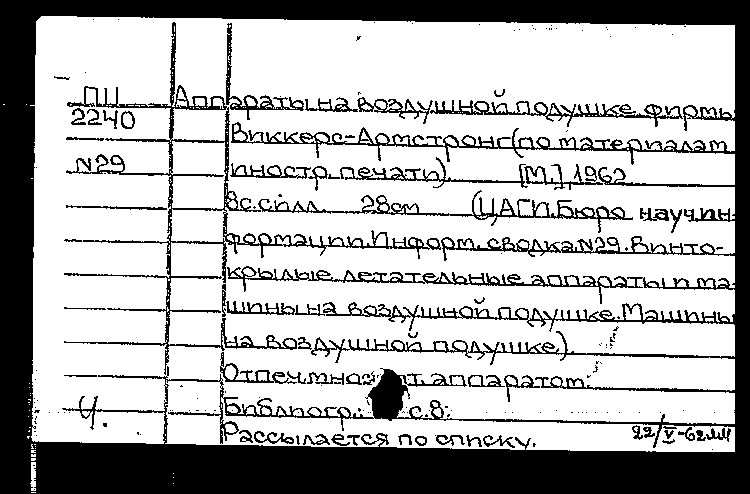 ПII Аппараты на воздушной подушке фирмы
2240 Виккерс-Армстронг(по материалам
N29 иностр. печати). [М.], 1962
8с.с илл. 28см (ЦАГИ.Бюро науч.ин-
формации.Информ. сводка.N29. Винто-
крылые летательные аппараты и ма-
шины на воздушной подушке. Машины
на воздушной подушке.)
Отпеч.множит. аппаратом.
Библиогр.: с.8.
Рассылается по списку.
Ч. 22/V-62мм